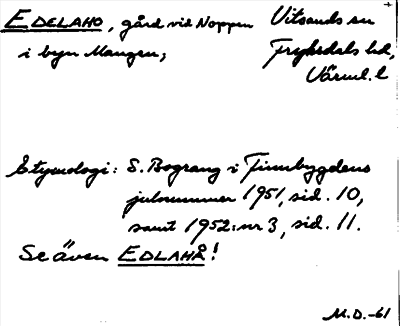 EDELAHO, gård vid Noppen Vitsands sn
i byn Mangen; Fryksdals hd,
Värml. l
Etymologi: S. Bograng i Finnbygdens
julnummer 1951, sid. 10,
samt 1952: nr 3, sid. 11.
Se även EDLAHÅ!
M.D.-61